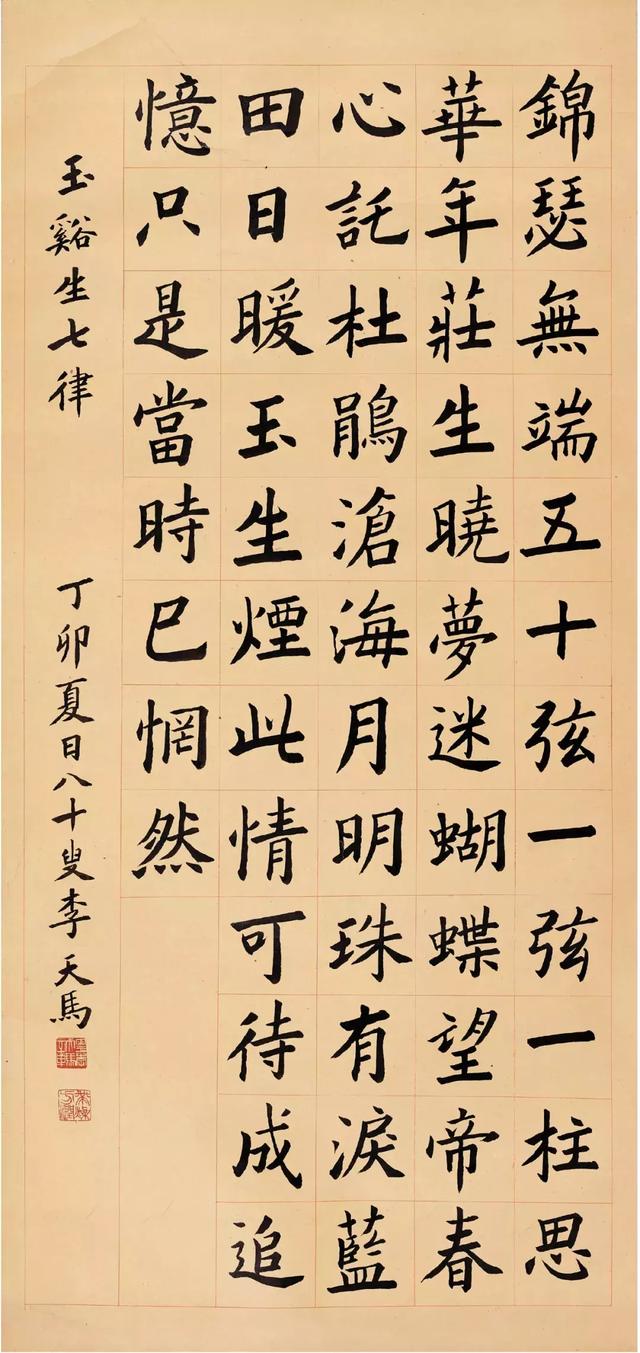 錦瑟無端五十弦一弦一柱思
華年莊生曉夢迷蝴蝶望帝春
心託杜鵑滄海月明珠有淚藍
田日暖玉生煙此情可待成追
憶只是當時已惘然
玉谿生七律
丁卯夏日八十叟李天馬